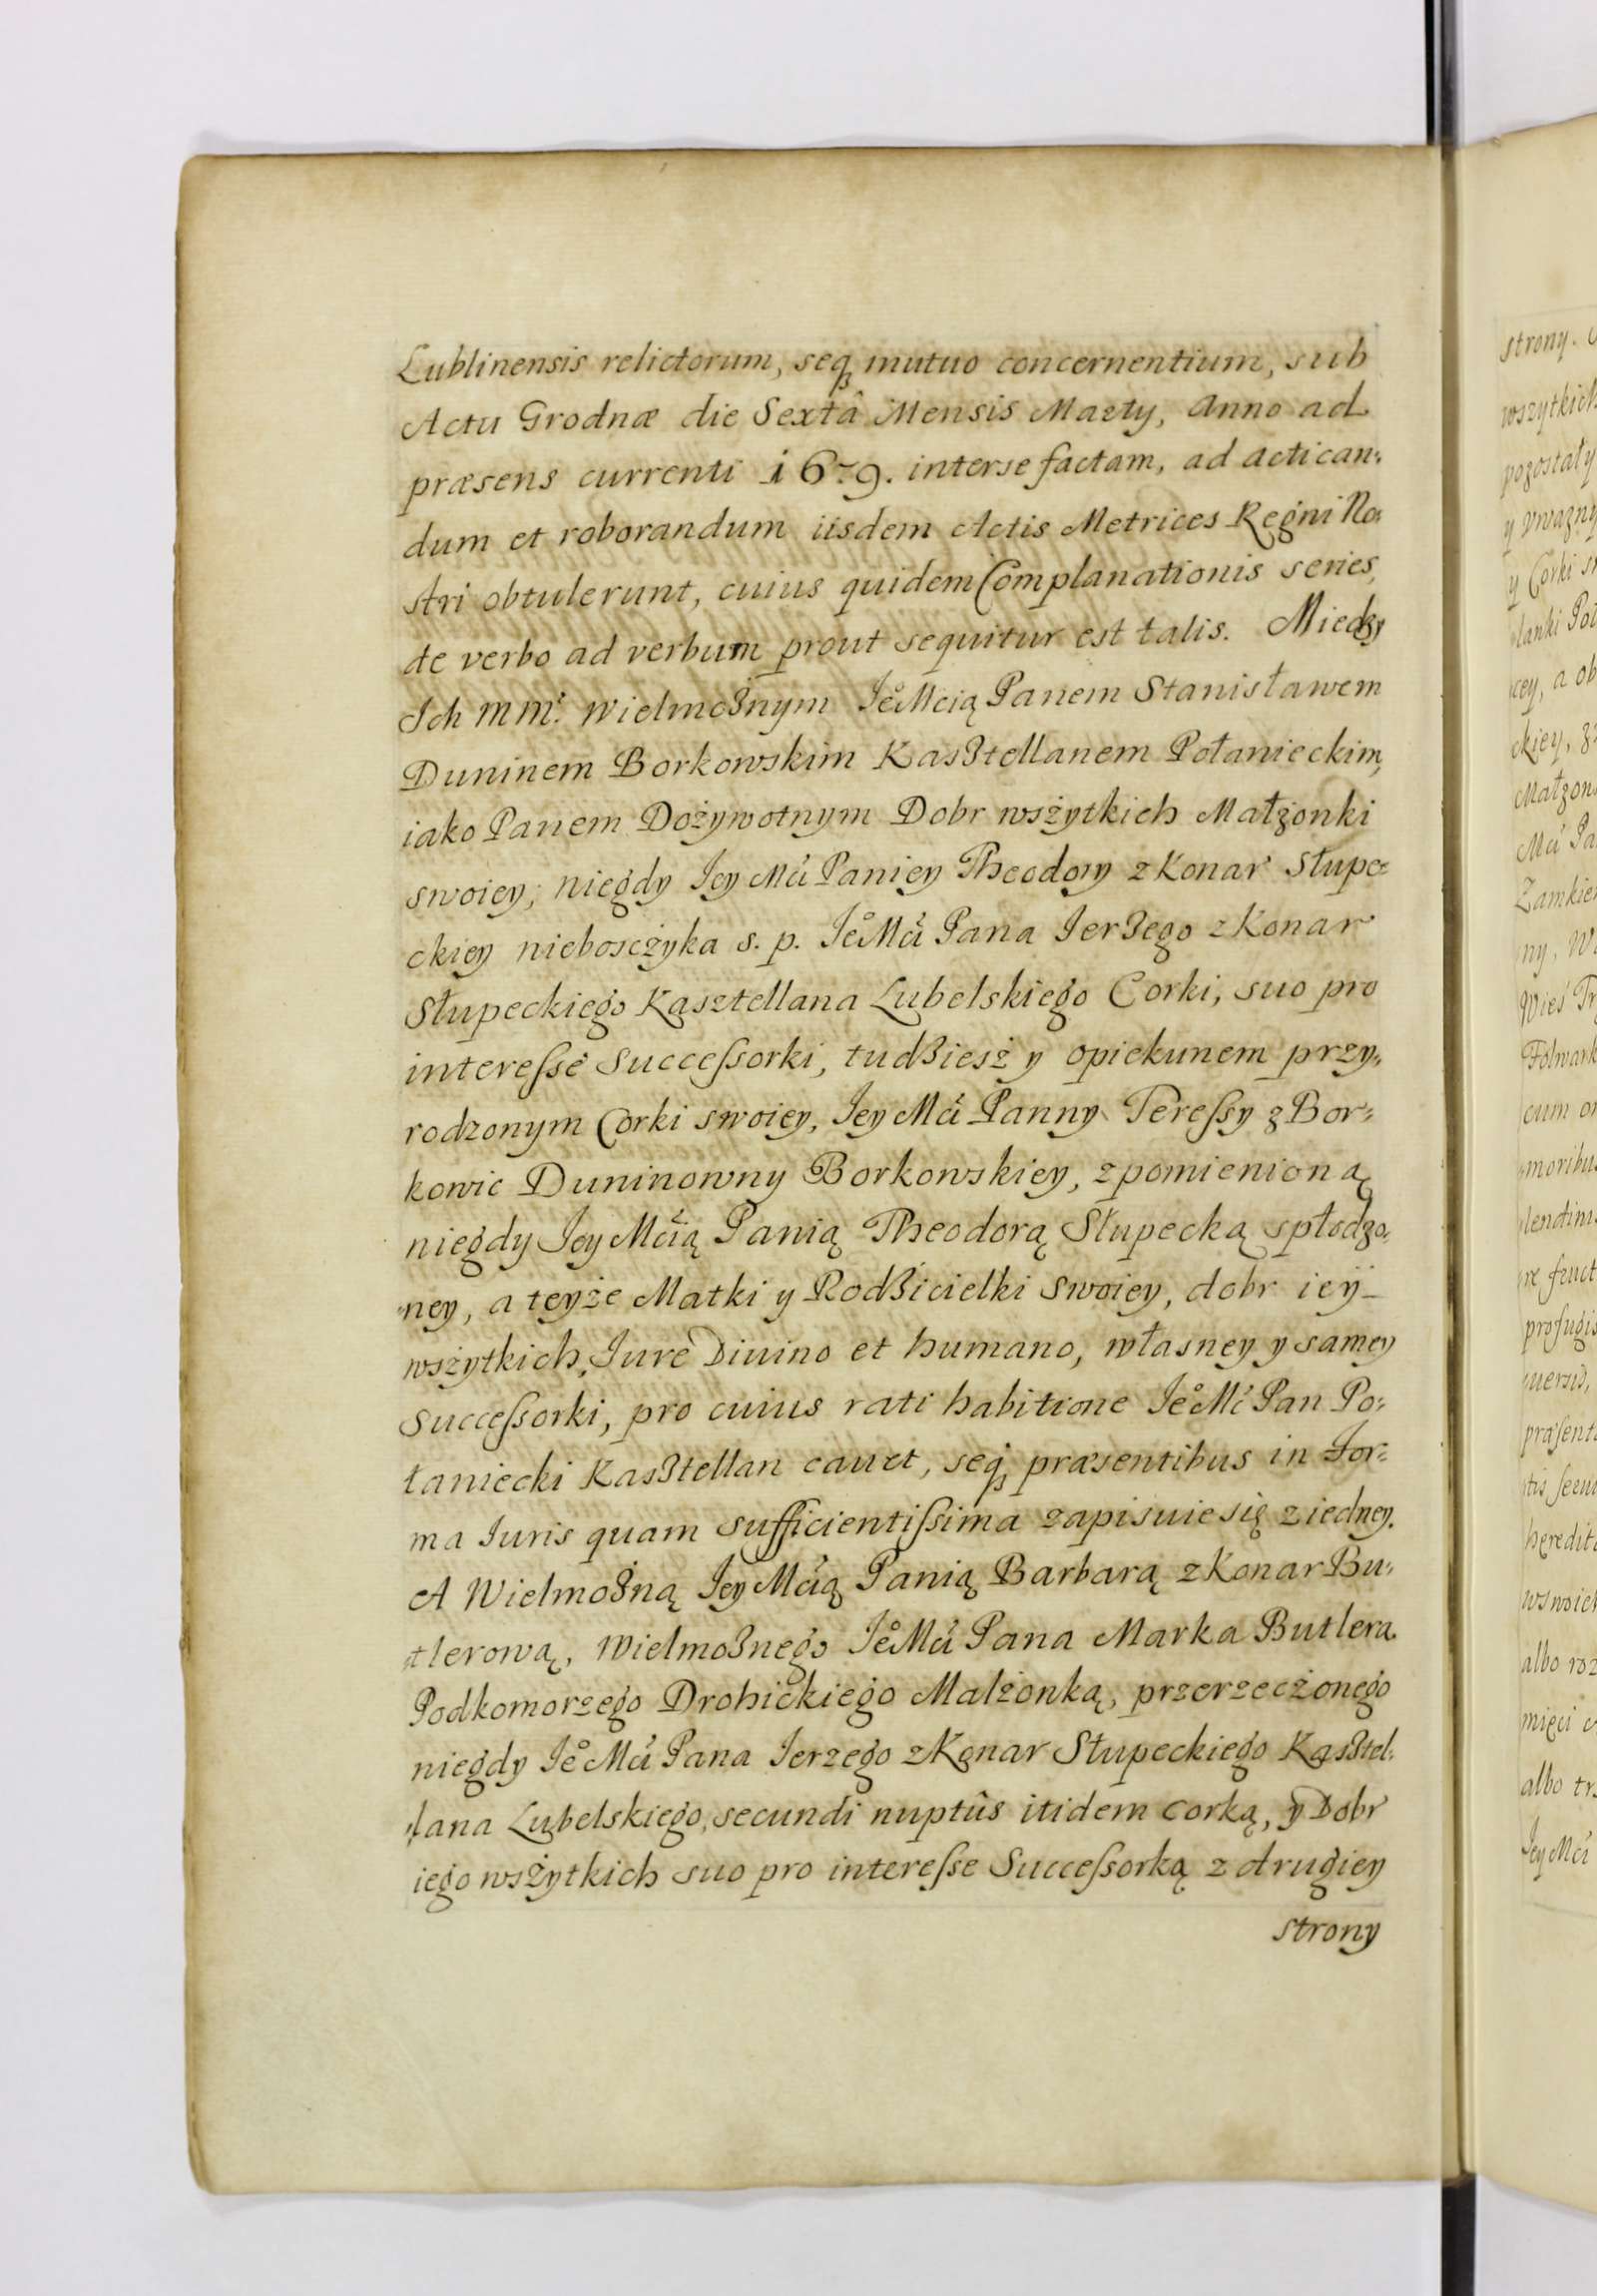 Lublinensis relictorum, seq₃ mutuo concernentium, sub
Actu Grodnæ die Sextâ Mensis Marty, Anno ad
præsens currenti 1679. inter se factam, ad actican:
dum et roborandum iisdem Actis Metrices Regni No:
stri obtulerunt, cuius quidem Complanationis series,
de verbo ad verbum prout sequitur est talis. Miedzy
Ich mm: Wielmożnym JeºMcią Panem Stanisławem
Duninem Borkowskim Kasztellanem Połanieckim,
iako Panem Dożywotnym Dobr wszytkich Małżonki
swoiey; niegdy Jey Mći Paniey Theodory z Konar Słupe:
ckiey nieboszczyka s. p. JeºMći Pana Jerzego z Konar
Słupeckiego Kasztellana Lubelskiego Corki, suo pro
interesse Successorki, tudziesz y opiekunem przy:
rodzonym Corki swoiey, Jey Mći Panny Teressy z Bor:
kowic Duninowny Borkowskiey, z pomienioną
niegdy Jey Mćią Panią Theodorą Słupecką spłodzo:
ney, a teyże Matki y Rodzicielki swoiey, dobr ieÿ
wszytkich, Jure Diuino et humano, własney y samey
Successorki, pro cuius rati habitione JeºMć Pan Po:
łaniecki Kasztellan cauet, seq₃ præsentibus in For:
ma Juris quam sufficientissima zapisuie się z iedney.
A Wielmożną Jey Mćią Panią Barbarą z Konar Bu:
tlerową, Wielmożnego JeºMći Pana Marka Butlera
Podkomorzego Drohickiego Malżonką, przerzeczonego
niegdy JeºMći Pana Jerzego z Konar Słupeckiego Kasztel:
lana Lubelskiego, secundi nuptûs itidem corką, y Dobr
iego wszytkich suo pro interesse Successorką z drugiey
strony